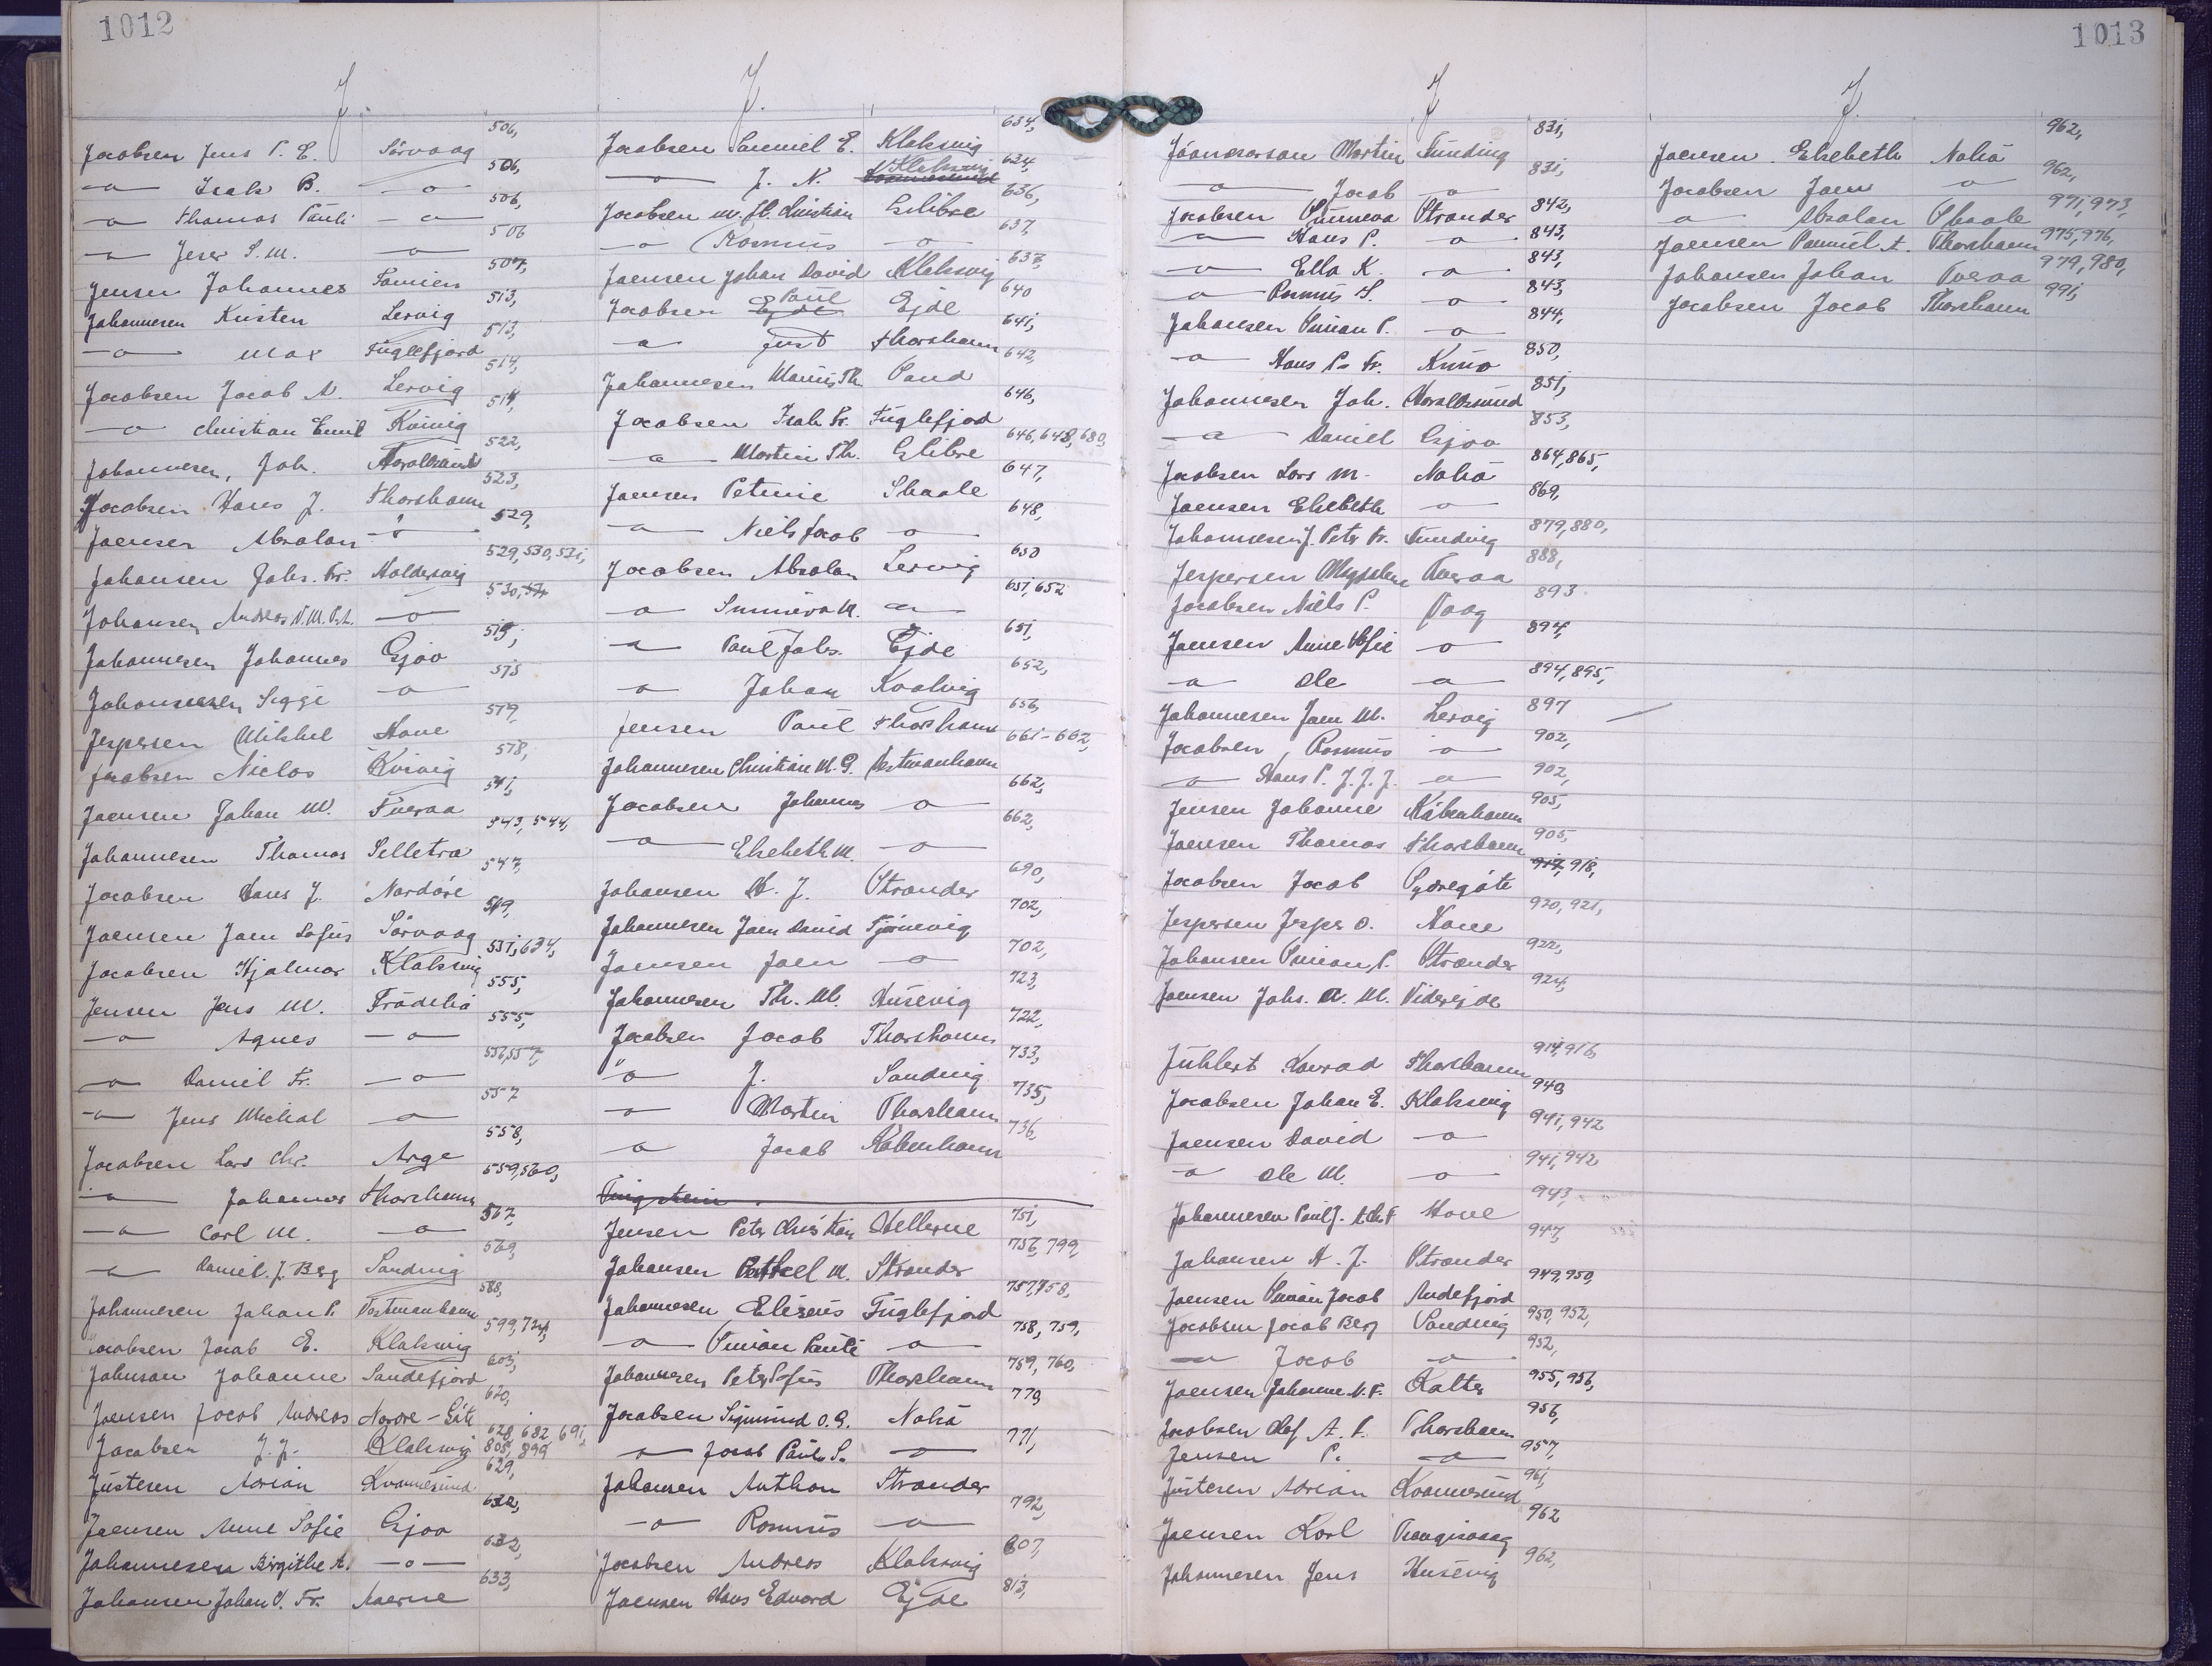 1012
J.
Jacobsen Jens P. E. Sörvaag 506,
—o— Isak B. —o— 506,
—o— Thomas Pauli —o— 506,
—o— S. M. —o— 506
Jensen Johannes Famien 507,
Johannesen Kristen Lervig 513,
—o— Max Fuglefjord 513,
Jacobsen Jacob A. Lervig 514,
—o— Christian Emil Kvivig 514,
Johannesen, Joh. Haraldsund 522,
Jacobsen Hans J. Thorshavn 523,
Joensen Absalon —o— 529,
Johansen Johs. Fr. Haldersvig 529, 530, 531,
Johansen Andreas —o— 530,
Johannesen Johannes Gjov 515,
Johannesen Sigge —o— 515
Jespersen Mikkel Hove 519,
Jacobsen Niclas Kvivig 578,
Joensen Johan M. Tveraa 541,
Johannesen Thomas Selletra 543, 544,
Jacobsen Hans J. Nordöre 547,
Joensen Joen Sofus Sörvaag 549,
Jacobsen Hjalmar Klaksvig 551, 634,
Jensen Jens M. Frödebö 555,
—o— Agnes —o— 555,
—o— Daniel Fr. —o— 556, 557,
—o— Jens Michal —o— 557
Jacobsen Lars Chr. Arge 558,
—o— Johannes Thorshavn 559, 560,
—o— Carl M. —o— 567,
—o— Daniel J. Berg Sandvig 569,
Johannesen Johan P. Vestmanhavn 588,
Jacobsen Jacob E. Klaksvig 599, 724,
Johnson Johanne Sandefjord 603,
Joensen Jacob Andreas Nordre-Göte 620,
Jacobsen J. J. Klaksvig 628, 682, 691, 805, 899
Justesen Adrian Kvannesund 629,
Joensen Anne Sofie Gjov 632,
Johannesen Birgithe A. —o— 632,
Johansen Johan V. Fr. Aaerne 633,
J.
Jacobsen Samuel E. Klaksvig 634,
—o— J. N. Klaksvig 634,
Jacobsen M. H. Christian Glibre 636,
—o— Rasmus —o— 637,
Joensen Johan David Klaksvig 637,
Jacobsen Paul Ejde 640
—o— Just Thorshavn 641,
Johannesen Marius Th. Sand 642,
Jacobsen Isak Fr. Fuglefjod 646,
—o— Martin Th. Glibre 646, 648, 680,
Joensen Petrine Skaale 647,
—o— Niels Jacob —o— 648,
Jacobsen Absalon Lervig 650
—o— Sunniva M. —o— 651, 652
—o— Paul Johs. Ejde 651,
—o— Johan Kvalvig 652,
Jensen Paul Thorshavn 656,
Johannesen Christian M. G. Vestmanhavn 661-662,
Jacobsen Johannes —o— 662,
—o— Elsebeth M. —o— 662,
Johansen H. J. Strander 690,
Johannesen Joen David Tjörnevig 702,
Joensen Joen —o— 702,
Johannesen Th. M. Husevig 723,
Jacobsen Jacob Thorshavn 722,
—o— J. Sandvig 733,
—o— Martin Thorshavn 735,
—o— Jacob Köbenhavn 736,
Jensen Peter Christian Hellerne 751,
Johansen M. Strander 756, 799,
Johannesen Elisæus Fuglefjord 757, 758,
—o— Simion Pauli —o— 758, 759,
Johannesen Peter Sofus Thorshavn 759, 760,
Jacobsen Sigmund O. G. Nolsö 770,
—o— Jacob Paul S. —o— 771,
Johansen Anthon Strander
—o— Rasmus —o— 792,
Jacobsen Andreas Klaksvig 807,
Joensen Hans Edvard Ejde 813,
1013
J
Martin Funding 831,
—o— Jacob —o— 831,
Jacobsen Sunneva Strander 842,
—o— Hans P. —o— 843,
—o— Ella K. —o— 843,
—o— Rasmus S. —o— 843,
Johansen Simon P. —o— 844,
—o— Hans P. Fr. Kunö 850,
Johannesen Joh. Haraldssund 851,
—o— Daniel Gjov 853,
Jacobsen Lars M. Nolsö 864, 865,
Joensen Elsebeth —o— 869,
Johannesen J. Petr Fr. Fundvig 879, 880,
Jespersen Magdalene Tveraa 888,
Jacobsen Niels P. Vaag 893
Joensen Anne Sofie —o— 894,
—o— Ole —o— 894, 895,
Johannesen Joen M. Lervig 897
Jacobsen, Rasmus —o— 902,
—o— Hans P. J. J. J. —o— 902,
Jensen Johanne Köbenhavn 905,
Joensen Thomas Thorshavn 905,
Jacobsen Jacob Sydregöte 917, 918,
Jespersen Jesper O. Hove 920, 921,
Johansen Simian P. Strander 922,
Joensen Johs. A. M. Viderejde 924,
Juhlert Konrad Thorshavn 914, 916,
Jacobsen Johan E. Klaksvig 940,
Joensen David —o— 941, 942
—o— Ole M. —o— 941, 942
Johannesen Poul J. Hove 943,
Johansen H. J. Strander 947,
Joensen Simun Jacob Andefjord 949, 950,
Jacobsen Jacob Berg Sandvig 950, 952,
—o— Jacob —o— 952,
Joensen Johanne N. F. Kolter 955, 956,
Jacobsen Olaf A. F. Thorshavn 956,
Jensen P. —o— 957,
Justesen Adrian Kvannesund 961,
Joensen Karl Trangisvaag 962
Johannesen Jens Husevig 962,
J.
Joensen Elsebeth Nolsö 962,
Jacobsen Joen —o— 962,
—o— Absalon Skaale 971, 973,
Joensen Samuel A. Thorshavn 975, 976,
Johansen Johan Tveraa 979, 980,
Jacobsen Jacob Thorshavn 991,